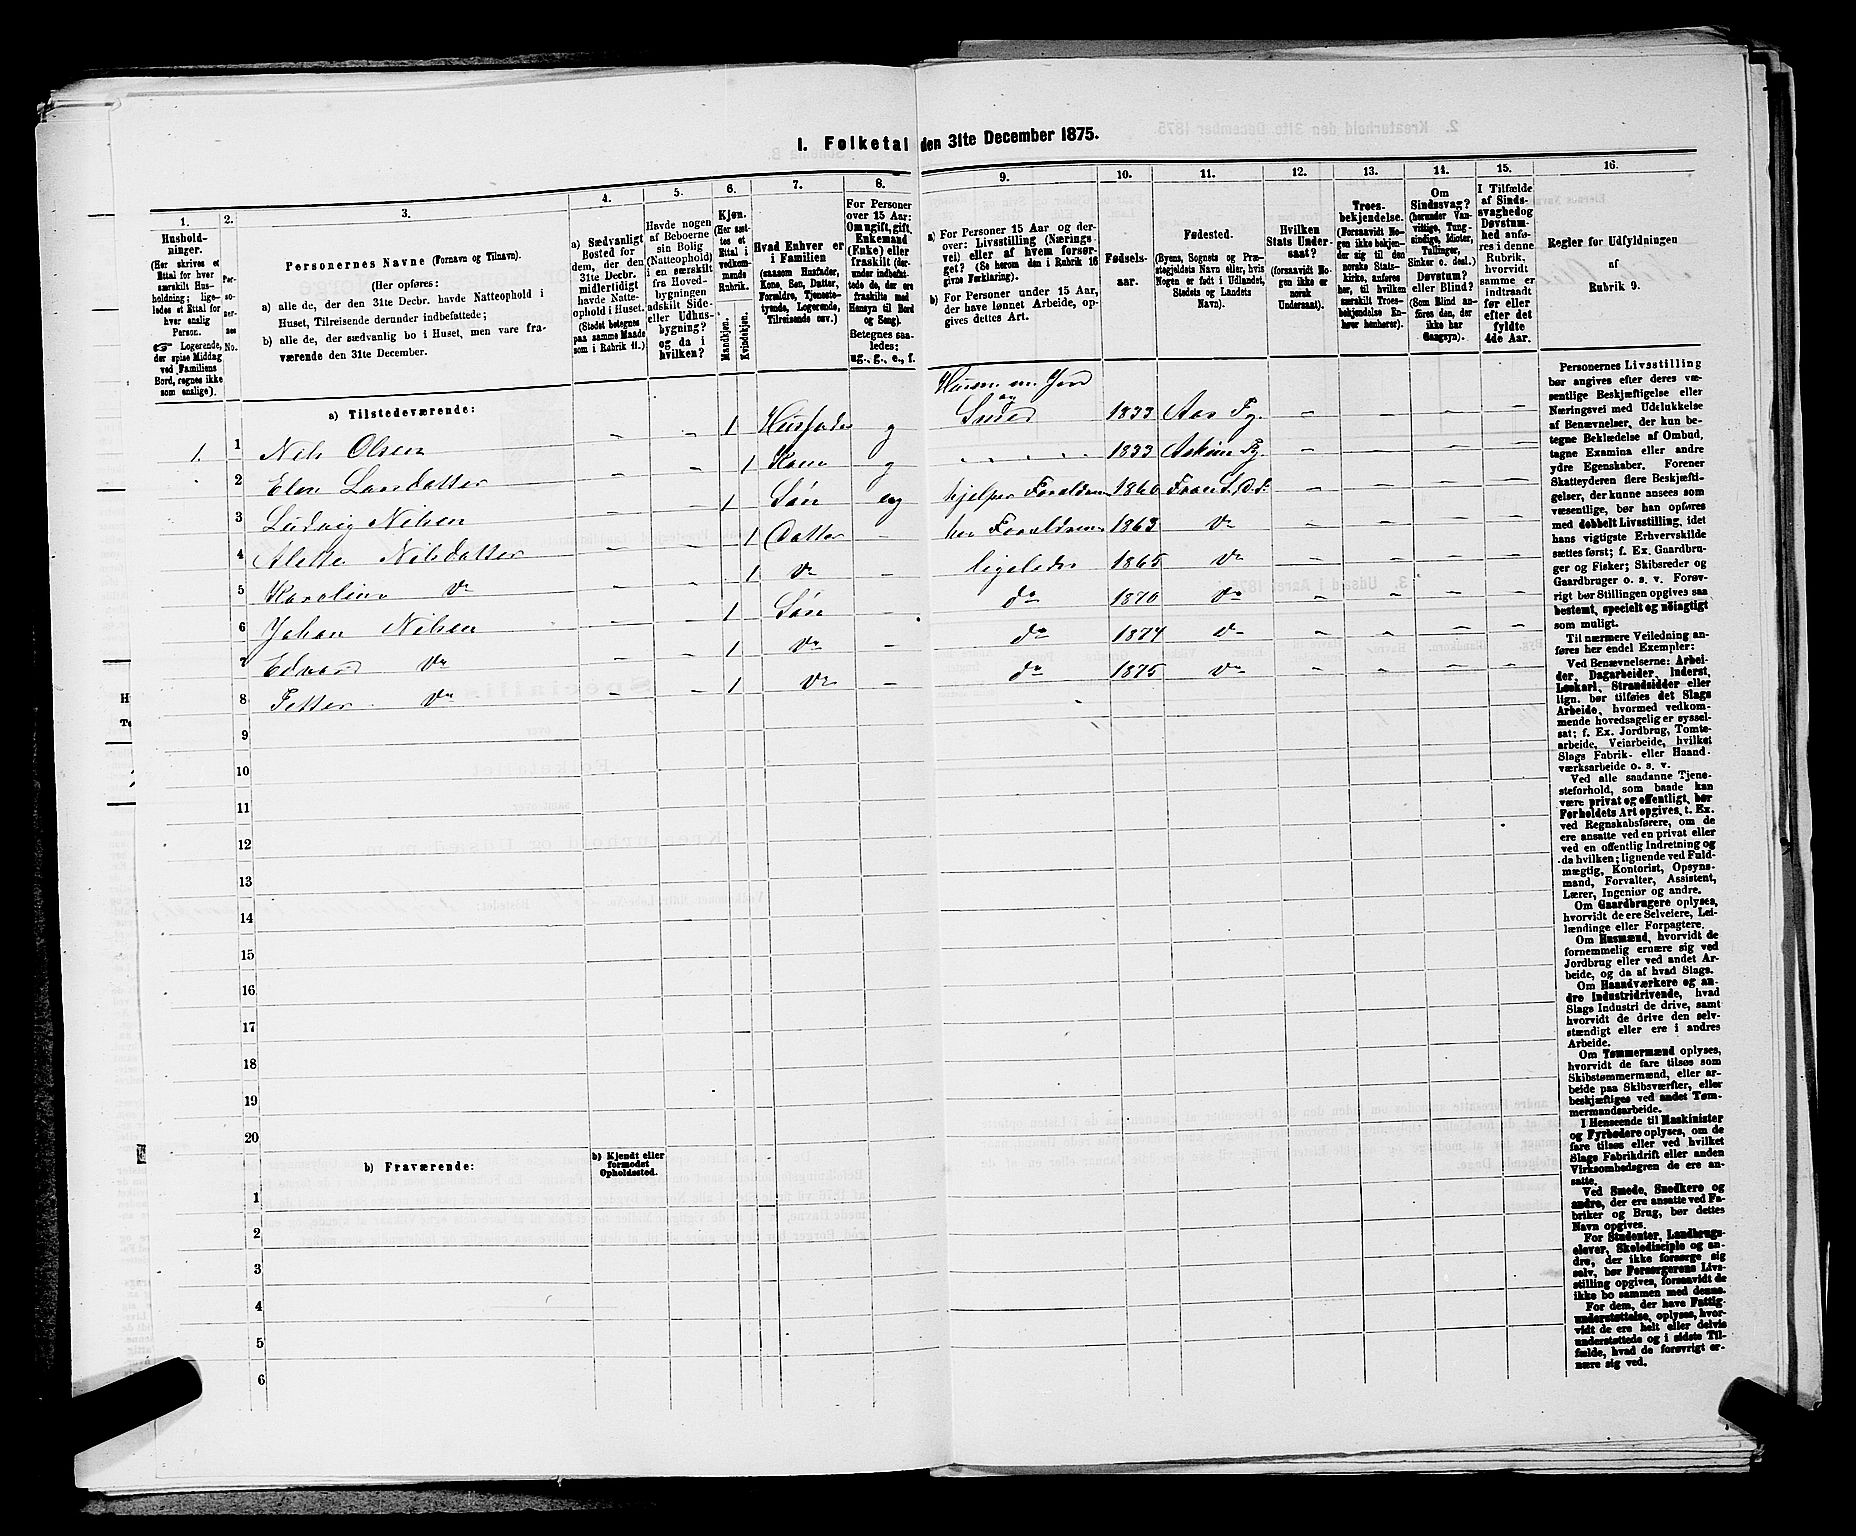 1. Folketal den 31te December 1875.
1. 2. 3. 4. 5. 6. 7. 8. 9. 10. 11. 12. 13. 14. 15. 16.
Hushold-
ninger.
(Her skrives et
Ettal for hver
særskilt Hus-
holdning; lige-
ledes et Ettal for
hver enslig
Person.
☞ Logerende,
der spise Middag
ved Familiens
Bord, regnes ikke
som enslige).
Per-
so-
ner-
nes
No.
Personernes Navne (Fornavn og Tilnavn).
(Her opføres:
a) alle de, der den 31te Decbr. havde Natteophold i
Huset, Tilreisende derunder indbefattede;
b) alle de, der sædvanlig bo i Huset, men vare fra-
værende den 31te December.
a) Sædvanligt
Bosted for
dem, der den
31te Decbr.
midlertidigt
havde Natte-
ophold i Huset.
(Stedet betegnes
paa samme Maade
som i Rubrik 11.)
Havde nogen
af Beboerne
sin Bolig
(Natteophold)
i en særskilt
fra Hoved-
bygningen
adskilt Side-
eller Udhus-
bygning?
og da i
hvilken?
Kjøn.
(Her sæt-
tes et
Ettal i
vedkom-
mende
Rubrik.
Mandkjøn.
Kvindekjøn.
Hvad Enhver er
i Familien
(saasom Husfader,
Kone, Søn, Datter,
Forældre, Tjeneste-
tyende, Logerende,
Tilreisende osv.)
For Personer
over 15 Aar:
Om ugift, gift,
Enkemand
(Enke) eller
fraskilt (der-
under indbefat-
tede de, der ere
fraskilte med
Hensyn til Bord
og Seng).
Betegnes saa-
ledes:
ug., g., e., f.
a) For Personer 15 Aar og der-
over: Livsstilling (Nærings-
vei) eller af hvem forsør-
get? (Se herom den i Rubrik 16
givne Forklaring).
b) For Personer under 15 Aar,
der have lønnet Arbeide, op-
gives dettes Art.
Fødsels-
aar.
Fødested.
(Byens, Sognets og Præ-
stegjeldets Navn eller, hvis
Nogen er født i Udlandet,
Stedets og Landets
Navn).
Hvilken
Stats Under-
saat?
(forsaavidt No-
gen ikke er
norsk
Undersaat).
Troes-
bekjendelse.
(Forsaavidt No-
gen ikke bekjen-
der sig til den
norske Stats-
kirke, anføres
her, til hvilken
særskilt Troes-
bekjendelse En-
hver henhører).
Om
Sindssvag?
(herunder Van-
vittige, Tung-
sindige, Idioter,
Tullinger,
Sinker o. desl.)
Døvstum?
eller Blind?
(Som Blind an-
føres den, der
ikke har
Gangsyn).
I Tilfælde
af Sinds-
svaghed og
Døvstum-
het anfø-
res i denne
Rubrik,
hvorvidt
samme er
indtraadt
før eller
efter det
fyldte
4de Aar.
Regler for Udfyldningen
af
Rubrik 9.
a) Tilstedeværende:
1. 1 Nils Olsen – – 1 Husfader g Husm. m. Jord og Smed 1833 Aas Pg. – – – –
2 Elen Larsdatter – – 1 Kone g " " " " " 1833 Askim Pg. – – – –
3 Ludvig Nilsen – – 1 Søn ug hjelper Forældrene 1860 – – – –
4 Alette Nilsdatter – – 1 Datter – hos Forældrene 1863 Do – – – –
5 Karoline Do – – 1 Do – ligeledes 1865 Do – – – –
6 Johan Nilsen – – 1 Søn – do 1870 Do – – – –
7 Edvard Do – – 1 Do – do 1874 Do – – – –
8 Petter Do – – 1 Do – do 1875 Do – – – –
9
10
11
12
13
14
15
16
17
18
19
20
b) Fraværende:
b) Kjendt eller
formodet
Opholdssted.
1
2
3
4
5
6
Personernes Livsstilling
bør angives efter deres væ-
sentlige Beskjæftigelse eller
Næringsvei med Udelukkelse
af Benævnelser, der kun be-
tegne Beklædelse af Ombud,
tagne Examina eller andre
ydre Egenskaber. Forener
Skatteyderen flere Beskjæfti-
gelser, der kunne ansees som
væsentlige, bør han opføres
med dobbelt Livsstilling, idet
hans vigtigste Erhvervskilde
sættes først; f. Ex. Gaardbru-
ger og Fisker; Skibsreder og
Gaardbruger o. s. v. Forøv-
rigt bør Stillingen opgives saa
bestemt, specielt og nöiagtigt
som muligt.
Til nærmere Veiledning an-
føres her endel Exempler:
Ved Benævnelserne: Arbei-
der, Dagarbeider, Inderst,
Løskarl, Strandsidder eller
lign. bør tilføies det Slags
Arbeide, hvormed vedkom-
mende hovedsagelig er syssel-
sat; f. Ex. Jordbrug, Tomte-
arbeide, Veiarbeide, hvilket
Slags Fabrik- eller Haand-
værksarbeide o. s. v.
Ved alle saadanne Tjene-
steforhold, som baade kan
være privat og offentligt, bør
Forholdets Art opgives, t. Ex.
ved Regnskabsførere, om de
ere ansatte ved en privat eller
ved en offentlig Indretning og
da hvilken; lignende ved Fuld-
mægtig, Kontorist, Opsyns-
mand, Forvalter, Assistent,
Lærer, Ingeniør og andre.
Om Gaardbrugere oplyses,
hvorvidt de ere Selveiere, Lei-
lændinge eller Forpagtere.
Om Husmænd, hvorvidt de
fornemmelig ernære sig ved
Jordbrug eller ved andet Ar-
beide, og da af hvad Slags.
Om Haandværkere og an-
dre Industridrivende, hvad
Slags Industri de drive, samt
hvorvidt de drive den selv-
stændigt eller ere i andres
Arbeide.
Om Tømmermænd oplyses,
hvorvidt de fare tilsøs som
Skibstømmermænd, eller ar-
beide paa Skibsværfter, eller
beskjæftiges ved andet Tøm-
mermandsarbeide.
I Henseende til Maskinister
og Fyrbødere oplyses, om de
fare tilsøs eller ved hvilket
Slags Fabrikdrift eller anden
Virksomhedsgren de ere an-
satte.
Ved Smede, Snedkere og
andre, der ere ansatte ved Fa-
briker og Brug, bør dettes
Navn opgives.
For Studenter, Landbrugs-
elever, Skoledisciple og an-
dre, der ikke forsørge sig
selv, bør Forsørgerens Livs-
stilling opgives, forsaavidt de
ikke bo sammen med denne.
For dem, der have Fattig-
understøttelse, oplyses, hvor-
vidt de ere helt eller delvis
understøttede og i sidste Til-
fælde, hvad de forøvrigt er-
nære sig ved.